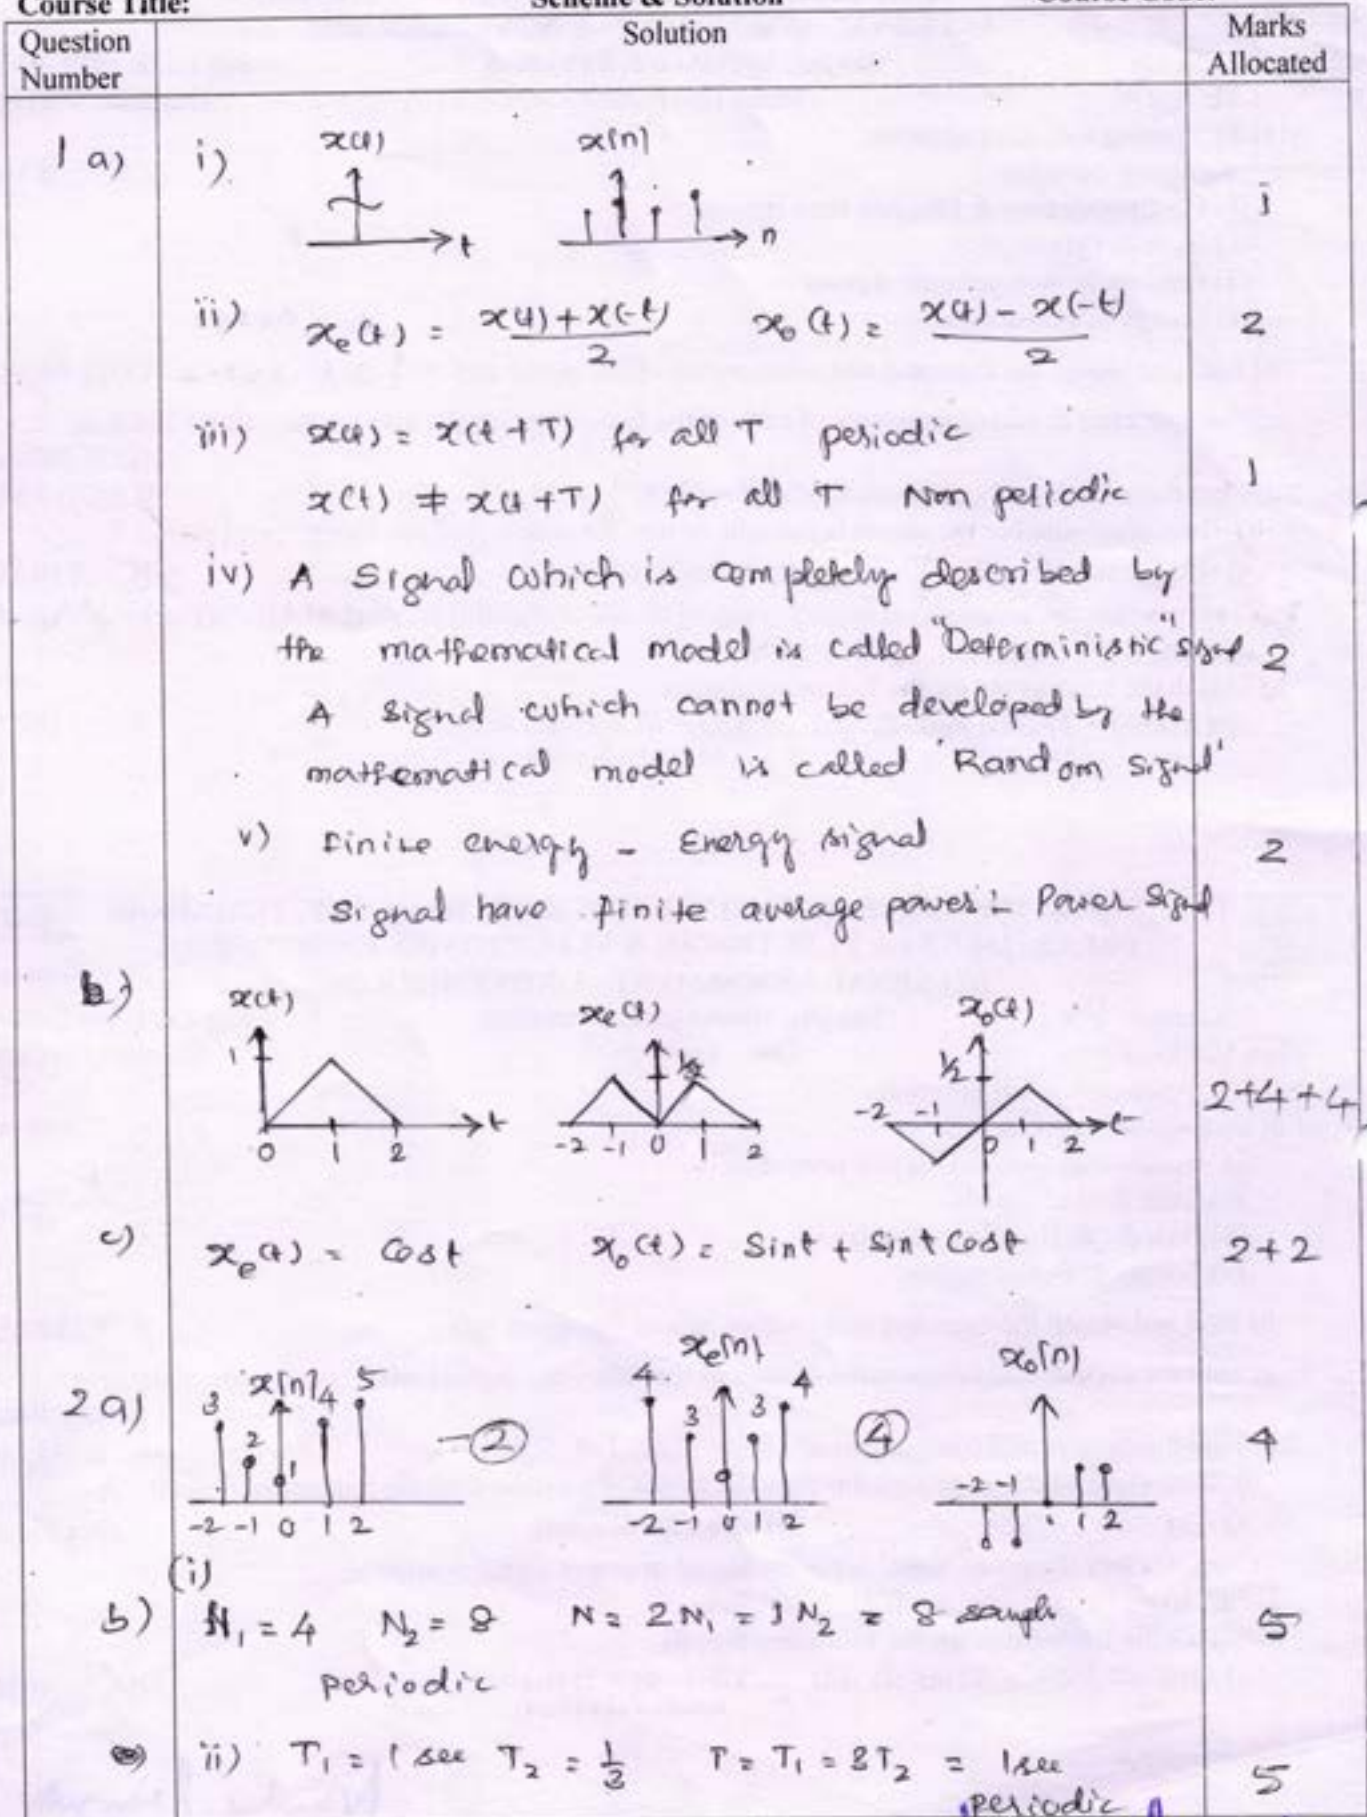 Course Title: Scheme & Solution
Question Number Solution Marks Allocated
1 a) i) x(t) x[n] 1
t n
ii) xₑ(t) = x(t) + x(-t) / 2 x₀(t) = x(t) - x(-t) / 2 2
iii) x(t) = x(t+T) for all T periodic
x(t) ≠ x(t+T) for all T Non periodic 1
iv) A Signal which is completely described by
the mathematical model is called "Deterministic" signal 2
A signal which cannot be developed by the
mathematical model is called 'Random signal'
v) Finite energy - Energy signal 2
Signal have finite average power - Power Signal
b) x(t) xₑ(t) x₀(t)
1 1/2 1/2
2+4+4
0 1 2 t -2 -1 0 1 2 -2 -1 0 1 2 t
c) xₑ(t) = Cost x₀(t) = Sint + Sint Cost 2+2
2 a) x[n] xₑ[n] x₀[n]
3 2 1 4 5 - 2 4 3 3 4 4 4
-2 -1 0 1 2 -2 -1 0 1 2 -2 -1 1 2
(i)
b) N₁ = 4 N₂ = 8 N = 2N₁ = 1N₂ = 8 sample 5
periodic
ii) T₁ = 1 sec T₂ = 1/3 T = T₁ = 3T₂ = 1 sec 5
periodic